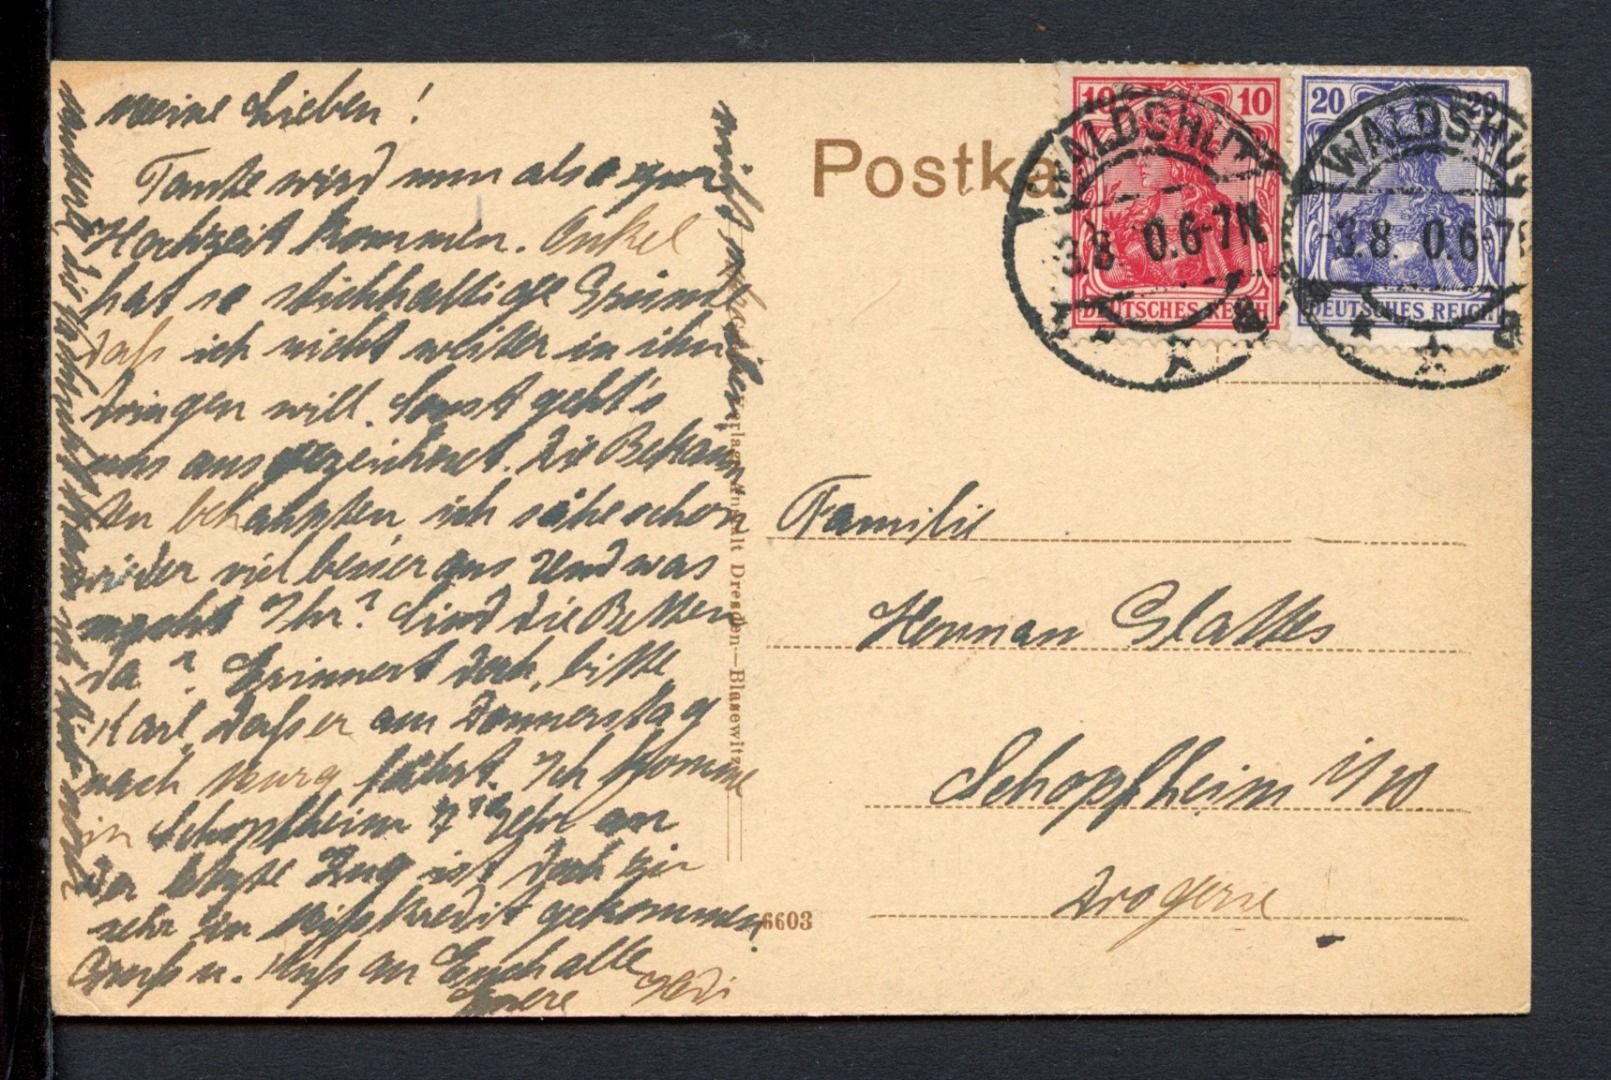 Meine Lieben!
Tante wird nun also zur
Hochzeit kommen. Onkel
hat so stichhaltige Gründe
daß ich nicht weiter in ihn
dringen will. Sonst geht's
uns ausgezeichnet. Die Bekann
ten behaupten ich sähe schon
wieder viel besser aus Und was
macht Ihr? Sind die Betten
da? Erinnert doch, bitte
Karl, daß er am Donnerstag
nach Murg fährt. Ich komme
in Schopfheim 7 Uhr an
Der letzte Zug ist doch
sehr in Mißkredit gekommen.
Gruß u. Kuß an Euch alle
Eure Hedi
Postka
10 10
DEUTSCHES REICH
20 20
DEUTSCHES REICH
WALDSHUT
3.8. 0.6-7N
WALDSHUT
3.8. 0.6-7
Familie
Herman Glattes
Schopfheim i/W
Drogerie
Dresden—Blasewitz
6603